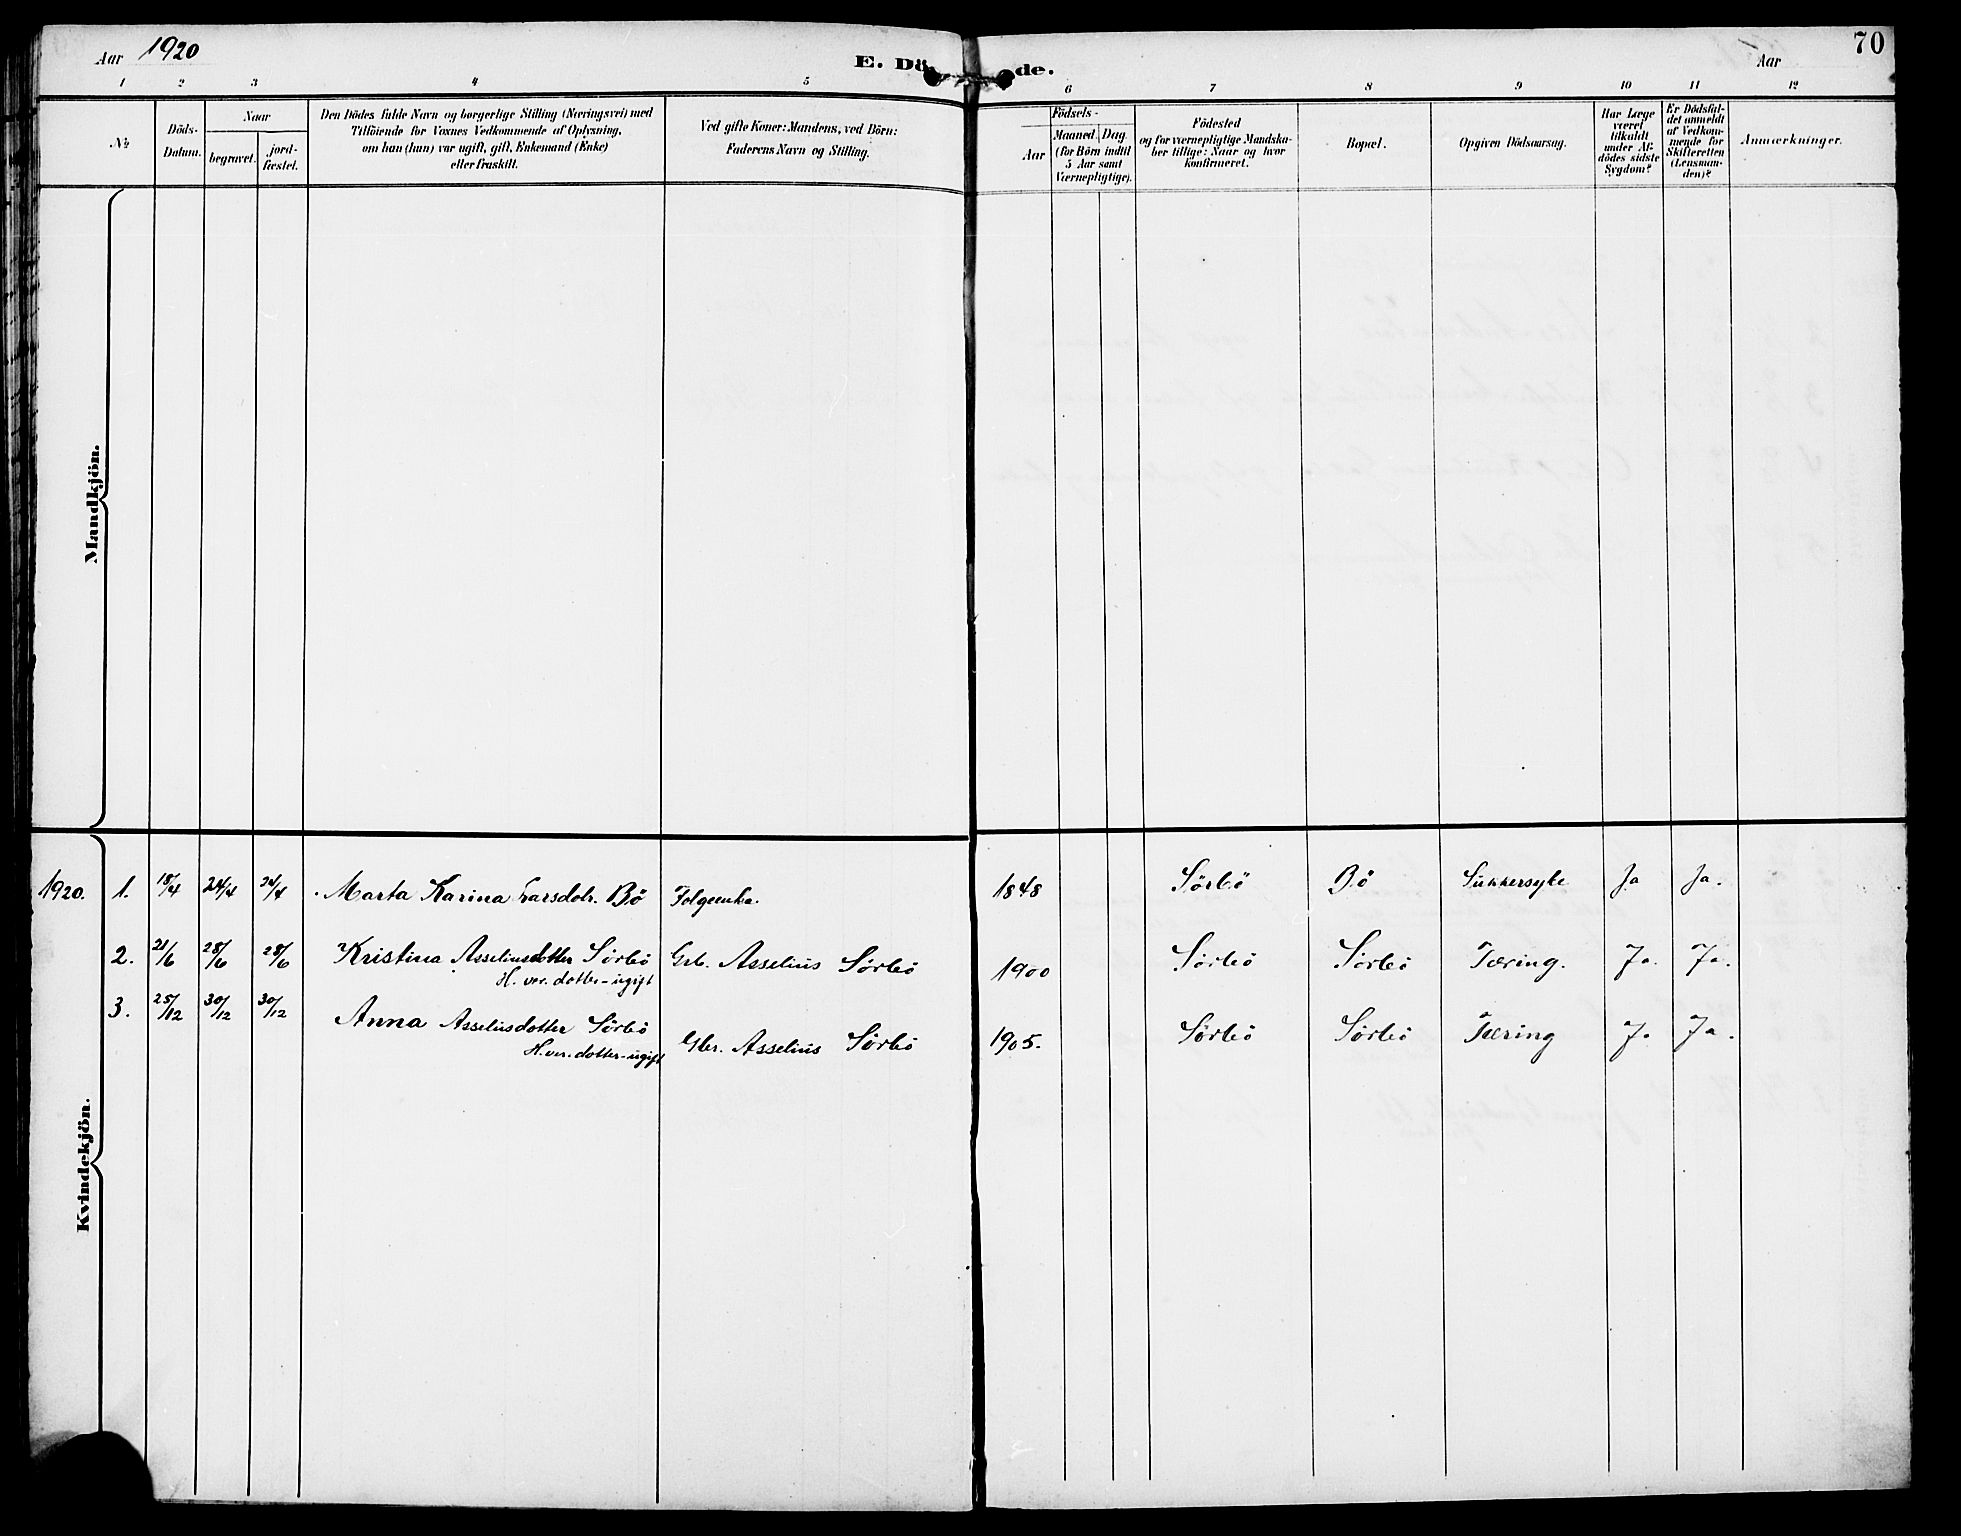 Aar 1920
E. Dö
de.
Aar
70
1 2 3 4 5 6 7 8 9 10 11 12
№
Döds-
Datum.
Naar
begravet.
jord-
fæstet.
Den Dödes fulde Navn og borgerlige Stilling (Næringsvei) med
Tilföiende for Voxnes Vedkommende af Oplysning,
om han (hun) var ugift, gift, Enkemand (Enke)
eller fraskilt.
Ved gifte Koner: Mandens, ved Börn:
Faderens Navn og Stilling.
Födsels-
Aar
Maaned.
Dag
(for Börn indtil
5 Aar samt
Værnepligtige).
Födested
og for værnepligtige Mandska-
ber tillige: Naar og hvor
konfirmeret.
Bopæl.
Opgiven Dödsaarsag.
Har Læge
været
tilkaldt
under Af-
dödes sidste
Sygdom?
Er Dödsfal-
det anmeldt
af Vedkom-
mende for
Skifteretten
(Lensman-
den)?
Anmærkninger.
Mandkjön.
Kvindekjön.
1920. 1. 18/4 24/4 24/4 Marta Karina Larsdotr. Bö Folgeenka. 1848 Sörbö Bö Sukkersyke Ja Ja.
2. 21/6 28/6 28/6 Kristina Asseliusdotter Sörbö Grb. Asselius Sörbö 1900 Sörbö Sörbö Tæring. Ja. Ja.
H. ver. dotter - ugift
3. 25/12 30/12 30/12 Anna Asseliusdotter Sörbö Gbr. Asselius Sörbö 1905. Sörbö Sörbö Tæring Ja Ja.
H. ver. dotter - ugift